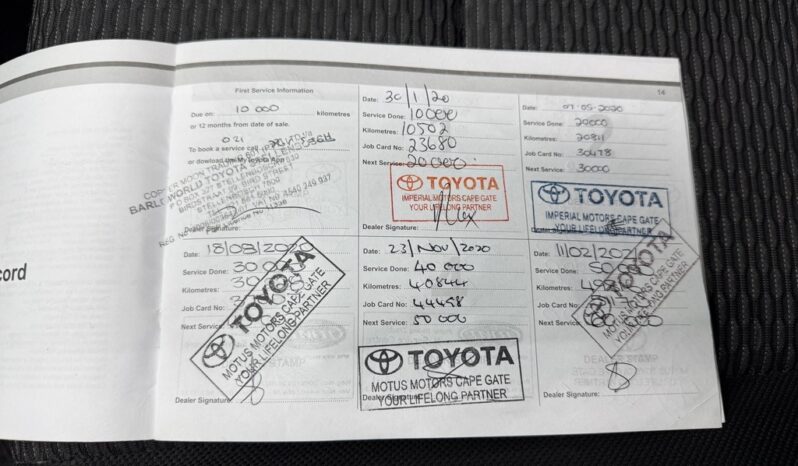 cord
14
First Service Information
Due on: 10 000 kilometres
or 12 months from date of sale.
021
To book a service call
or dowload the MyToyota App
BARLOWORLD TOYOTA STELLENBOSCH
Dealer Signature:
Date: 30/1/20
Service Done: 10000
Kilometres: 10502
Job Card No: 23680
Next Service: 20000
TOYOTA
IMPERIAL MOTORS CAPE GATE
YOUR LIFELONG PARTNER
Dealer Signature:
Date: 07-05-2020
Service Done: 20000
Kilometres: 20811
Job Card No: 30478
Next Service: 30000
TOYOTA
IMPERIAL MOTORS CAPE GATE
YOUR LIFELONG PARTNER
Dealer Signature:
Date: 18/08/2020
Service Done: 30 000
Kilometres:
Job Card No:
Next Service:
TOYOTA
MOTUS MOTORS CAPE GATE
YOUR LIFELONG PARTNER
Dealer Signature:
Date: 23/Nov/2020
Service Done: 40 000
Kilometres: 40844
Job Card No: 44458
Next Service: 50 000
TOYOTA
MOTUS MOTORS CAPE GATE
YOUR LIFELONG PARTNER
Dealer Signature:
Date: 11/02/2021
Service Done:
Kilometres:
Job Card No:
Next Service:
TOYOTA
MOTUS MOTORS CAPE GATE
YOUR LIFELONG PARTNER
Dealer Signature: